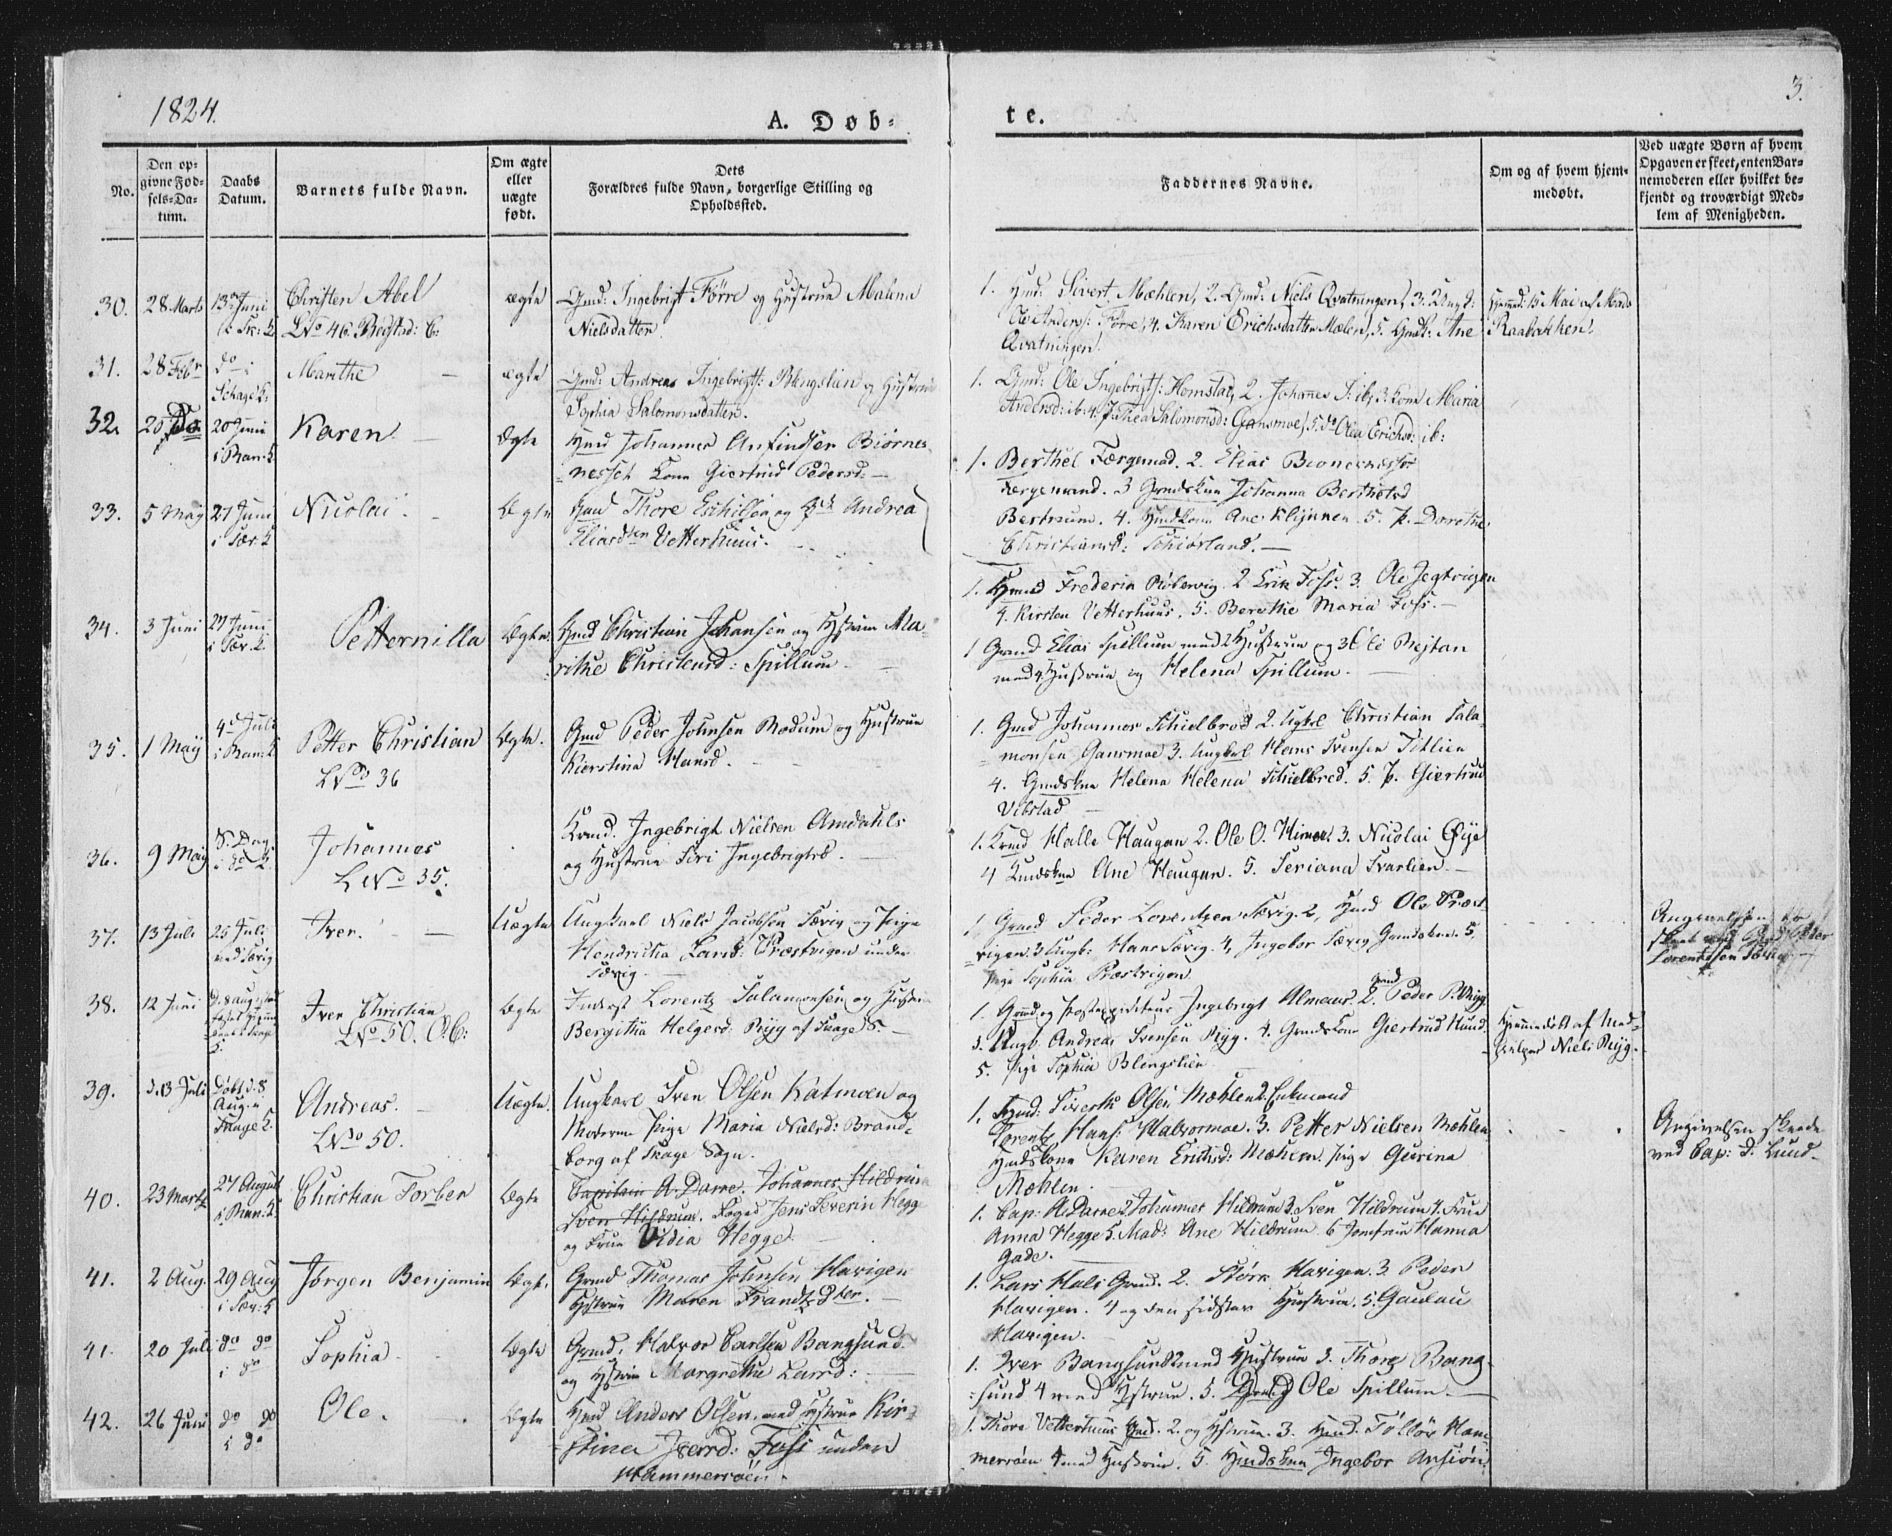 1824.
A. Døb-
te.
3.
No.
Den op-
givne Fød-
sels-Da-
tum.
Daabs
Datum.
Barnets fulde Navn.
Om ægte
eller
uægte
født.
Dets
Forældres fulde Navn, borgerlige Stilling og
Opholdssted.
Faddernes Navne.
Om og af hvem hjem-
medøbt.
Ved uægte Børn af hvem
Opgaven er skeet, enten Bar-
nemoderen eller hvilket be-
kjendt og troværdigt Med-
lem af Menigheden.
30.
28 Marts
13de Juni
Christen Abel
LNo 46.
ægte
Gmd: Ingebrigt Førre og Hustrue Malena
Nielsdatter
1. Hmd: Sivert Mæhlen, 2. Gmd: Niels Qvatningen, 3. Ungk:
Ole Anders: Førre, 4. Karen Erichsdatter Mælen, 5. Ane
Qvatningen.
Mai af Mads
Raabakken.
31.
28 Febr
do i
Schage K:
Marithe
ægte
Gmd: Andreas Ingebrigts: Blengslien og Hustrue
Sophia Salomonsdatter.
1. Gmd: Ole Ingebrigts: Homstad, 2. Johannes ib: 3. Kone Maria
Andersd: ib: 4. Salomonsd: Gansmoe, 5. do Olea Erichsd: ib:
32.
25 Do
20 Juni
i Ran: K
Karen.
Ægte
Hmd Johannes Anfindsen Biørnes
nesset Kone Giertrud Pedersd: —
1. Berthel Færgemad. 2. Elias
Færgemand. 3 Gmdskone Johanna Berthelsd
Bertnum. 4. Hmdkone Ane Klijnnen. 5. P. Dorethe
Christiansd: Schiørland. —
33.
5 Maÿ
27 Juni
i Sær: K
Nicolai.
Ægte
Hmd Thore Eskilsen og Andrea
Eliasdten Vetterhuus.
1. Hmd Frederik Røbervig. 2 Erik Foss. 3. Ole Jegtvigen
4. Kirsten Vetterhuus. 5. Berethe Maria Foss. —
34.
3 Juni
27 Juni
i Sær. K.
Petternilla
Ægte
Hmd Christian Johansen og Hustrue Ma-
rithe Christensd: Spillum. —
1 Gmd Elias Spillum med 2 Hustrue og 3 Ole Rejtan
med 4 Hustrue og Helena Spillum. —
35.
1 Maÿ
4d Juli
i Ran: K
Petter Christian
LNo 36
Ægte.
Gmd Peder Johnsen Rodum og Hustrue
Kierstina Hansd.
1. Gmd Johannes Schielbred 2. Ungkl Christian Sala-
monsen Gansmoe 3. Ungkal Hans Svensen Titlien
4. Gmdskone Helena Helena Schielbred. 5. P. Giertrud
Vibstad
36.
9 Maÿ
S. Dag
i do K.
Johannes
LNo 35.
Kmd. Ingebrigt Nielsen Amdahls
og Hustrue Siri Ingebrigtsd.
1. Kmd Halle Haugan 2. Ole O. Himo. 3. Nicolai Øÿe
4 Kmdskone Ane Haugan. 5. Seriana Svarlien. —
37.
13 Juli
25 Juli
ved Sævig
Iver.
Uægte
Ungkarl Niels Jacobsen Sævig og Pige
Hendrikka Larsd: Præstvigen under
Sævig.
1. Gmd Peder Lorentzen Sævig 2, Hmd Ole Præst-
vigen 3 Ungk: Hans Sævig. 4, Ingebor Sævig Gmdskone. 5,
Pige Sophia Præstvigen
Angivelsen er
skeet ved Gmd Peder
Lorentzsen Sævig
38.
12 Juni
Iver Christian
LNo 50. O.C:
Ægte
Inderst Lorentz Salamonsen og Hustrue
Bergithа Helgesd Rÿg af Skage S. —
1. Gmd og Postexpiditeur Ingebrigt Almaas. 2. Gmd Peder Rÿg
3. Ungk. Andreas Svensen Rÿg. 4. Gmdskone Giertrud Hund
5. Pige Sophia Blengslien
Hjemmedøbt af Med-
hielper Niels Rÿg.
39.
d. 13 Juli
Døbt d. 8
Aug. i
Skage K.
Andreas.
LNo 50.
Uægte.
Ungkarl Sven Olsen Katmoen og
Moderen Pige Maria Nielsd: Brand-
borg af Skage Sogn.
1. Gmd: Siverth Olsen Mæhlen 2. Enkemand
Lorentz Hans: Halvormoe. 3. Petter Nielsen Mæhlen
Hmdskone Karen Erichsd: Mæhlen. Pige Gurina
Mæhlen.
Angivelsen skeede
ved Cap: D. Lund
40.
23 Marts
27 August
i Ran: K.
Christian Forber
Ægte
Capitain A. Darre. Johannes Hildrum
Sven Hildrum. Foged Jens Severin Hegge
og Frue Vidia Hegge.
1. Cap: A. Darre 2 Johannes Hildrum 3. Sven Hildrum 4. Frue
Anna Hegge 5. Mad: Ane Hildrum. 6 Jomfrue Hanna
Gade.
41.
2 Aug.
29 Aug
i Sær: K
Jørgen Benjamin
Ægte
Gmd Thomas Johnsen Havigen
Hustrue Maren Frandtz Dter. —
1. Lars Hals Gmd. 2. Størk Havigen. 3. Peder
Havigen. 4 og den sidstes Hustrue. 5. Gaulau
Havigen.
41.
20 Juli
do do
i do
Sophia
Ægte
Gmd. Halvor Carlsen Bangsund
og Hustrue Margrethe Larsd:
1. Iver Bangsund 2 med Hustrue 3. Thore Bang-
sund 4 med Hustrue. 5. Gmd Ole Spillum. —
42.
26 Juni
do do
i do
Ole.
Ægte
Hmd Anders Olsen med Hustrue Kir-
stina Iversd: Foss under
Hammerrøen.
1. Thore Vetterhuus Hmd. 2. og Hustrue. 3. Hmd. Tøllør Ham
merrøen 4 med Hustrue. 5. Hmdskone Ingebor Ansiøn